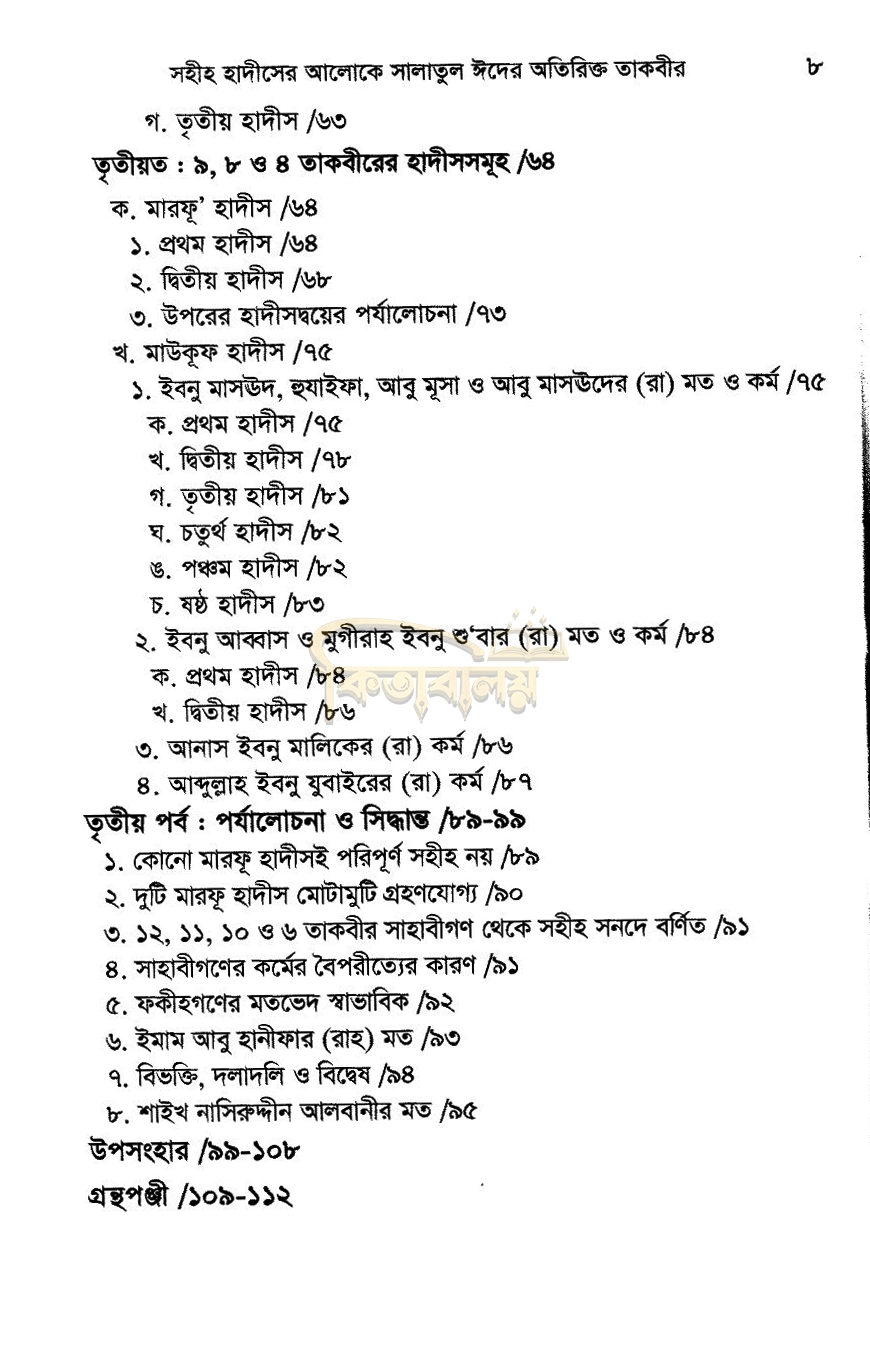 সহীহ হাদীসের আলোকে সালাতুল ঈদের অতিরিক্ত তাকবীর ৮
গ. তৃতীয় হাদীস /৬৩
তৃতীয়ত : ৯, ৮ ও ৪ তাকবীরের হাদীসসমূহ /৬৪
ক. মারফূ’ হাদীস /৬৪
১. প্রথম হাদীস /৬৪
২. দ্বিতীয় হাদীস /৬৮
৩. উপরের হাদীসদ্বয়ের পর্যালোচনা /৭৩
খ. মাউকূফ হাদীস /৭৫
১. ইবনু মাসঊদ, হুযাইফা, আবু মূসা ও আবু মাসঊদের (রা) মত ও কর্ম /৭৫
ক. প্রথম হাদীস /৭৫
খ. দ্বিতীয় হাদীস /৭৮
গ. তৃতীয় হাদীস /৮১
ঘ. চতুর্থ হাদীস /৮২
ঙ. পঞ্চম হাদীস /৮২
চ. ষষ্ঠ হাদীস /৮৩
২. ইবনু আব্বাস ও মুগীরাহ ইবনু শু‘বার (রা) মত ও কর্ম /৮৪
ক. প্রথম হাদীস /৮৪
কিতাবালয়
খ. দ্বিতীয় হাদীস /৮৬
৩. আনাস ইবনু মালিকের (রা) কর্ম /৮৬
৪. আব্দুল্লাহ ইবনু যুবাইরের (রা) কর্ম /৮৭
তৃতীয় পর্ব : পর্যালোচনা ও সিদ্ধান্ত /৮৯-৯৯
১. কোনো মারফূ হাদীসই পরিপূর্ণ সহীহ নয় /৮৯
২. দুটি মারফূ হাদীস মোটামুটি গ্রহণযোগ্য /৯০
৩. ১২, ১১, ১০ ও ৬ তাকবীর সাহাবীগণ থেকে সহীহ সনদে বর্ণিত /৯১
৪. সাহাবীগণের কর্মের বৈপরীত্যের কারণ /৯১
৫. ফকীহগণের মতভেদ স্বাভাবিক /৯২
৬. ইমাম আবু হানীফার (রাহ) মত /৯৩
৭. বিভক্তি, দলাদলি ও বিদ্বেষ /৯৪
৮. শাইখ নাসিরুদ্দীন আলবানীর মত /৯৫
উপসংহার /৯৯-১০৮
গ্রন্থপঞ্জী /১০৯-১১২